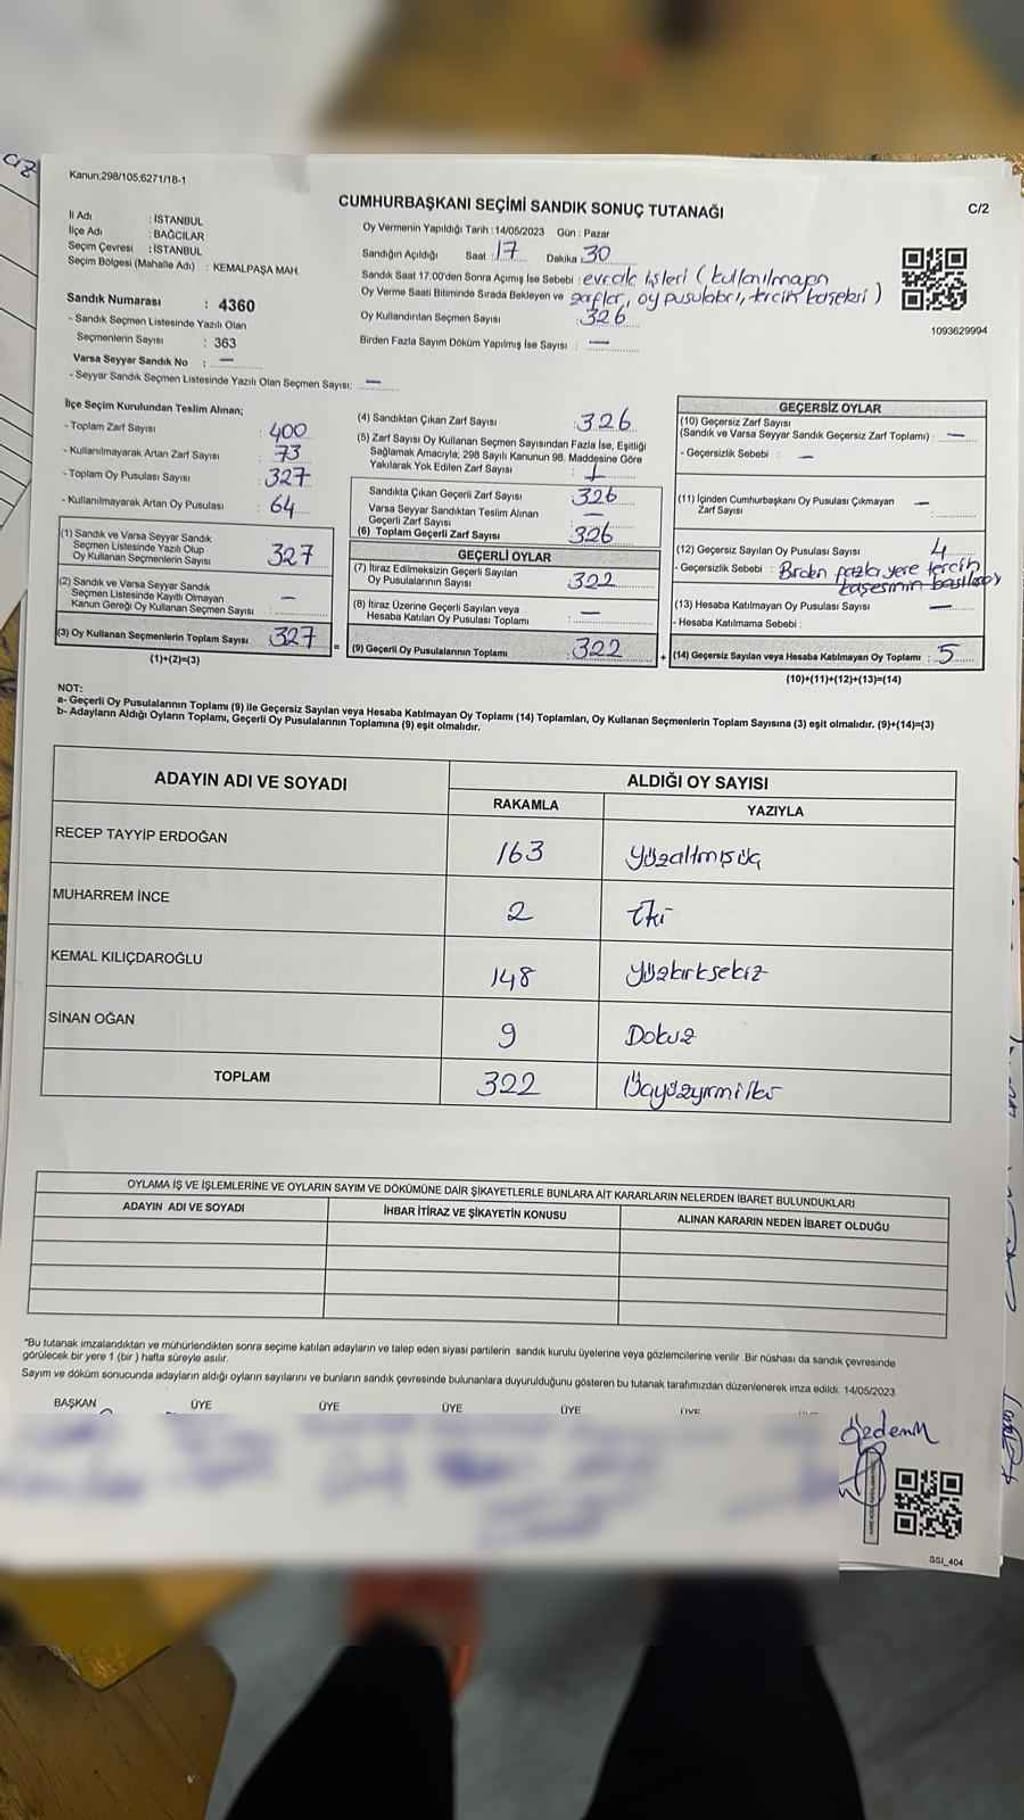 Kanun;298/105;6271/18-1
CUMHURBAŞKANI SEÇİMİ SANDIK SONUÇ TUTANAĞI
C/2
İl Adı : İSTANBUL
İlçe Adı : BAĞCILAR
Seçim Çevresi : İSTANBUL
Seçim Bölgesi (Mahalle Adı) : KEMALPAŞA MAH.
Sandık Numarası : 4360
- Sandık Seçmen Listesinde Yazılı Olan
Seçmenlerin Sayısı : 363
Varsa Seyyar Sandık No : —
- Seyyar Sandık Seçmen Listesinde Yazılı Olan Seçmen Sayısı: —
Oy Vermenin Yapıldığı Tarih : 14/05/2023 Gün : Pazar
Sandığın Açıldığı Saat : 17 Dakika : 30
Sandık Saat 17:00'den Sonra Açımış İse Sebebi : evrak işleri (kullanılmayan
Oy Verme Saati Bitiminde Sırada Bekleyen ve zarflar, oy pusulaları, tercih kaşeleri)
Oy Kullandırılan Seçmen Sayısı : 326
Birden Fazla Sayım Döküm Yapılmış İse Sayısı : —
1093629994
İlçe Seçim Kurulundan Teslim Alınan;
- Toplam Zarf Sayısı : 400
- Kullanılmayarak Artan Zarf Sayısı : 73
- Toplam Oy Pusulası Sayısı : 327
- Kullanılmayarak Artan Oy Pusulası : 64
(1) Sandık ve Varsa Seyyar Sandık
Seçmen Listesinde Yazılı Olup
Oy Kullanan Seçmenlerin Sayısı : 327
(2) Sandık ve Varsa Seyyar Sandık
Seçmen Listesinde Kayıtlı Olmayan
Kanun Gereği Oy Kullanan Seçmen Sayısı : —
(3) Oy Kullanan Seçmenlerin Toplam Sayısı : 327
(1)+(2)=(3)
=
(4) Sandıktan Çıkan Zarf Sayısı : 326
(5) Zarf Sayısı Oy Kullanan Seçmen Sayısından Fazla İse, Eşitliği
Sağlamak Amacıyla; 298 Sayılı Kanunun 98. Maddesine Göre
Yakılarak Yok Edilen Zarf Sayısı : 1
Sandıkta Çıkan Geçerli Zarf Sayısı : 326
Varsa Seyyar Sandıktan Teslim Alınan
Geçerli Zarf Sayısı : —
(6) Toplam Geçerli Zarf Sayısı : 326
GEÇERLİ OYLAR
(7) İtiraz Edilmeksizin Geçerli Sayılan
Oy Pusulalarının Sayısı : 322
(8) İtiraz Üzerine Geçerli Sayılan veya
Hesaba Katılan Oy Pusulası Toplamı : —
(9) Geçerli Oy Pusulalarının Toplamı : 322
+
GEÇERSİZ OYLAR
(10) Geçersiz Zarf Sayısı
(Sandık ve Varsa Seyyar Sandık Geçersiz Zarf Toplamı) : —
- Geçersizlik Sebebi : —
(11) İçinden Cumhurbaşkanı Oy Pusulası Çıkmayan
Zarf Sayısı : —
(12) Geçersiz Sayılan Oy Pusulası Sayısı : 4
- Geçersizlik Sebebi : Birden fazla yere tercih
kaşesinin basılması
(13) Hesaba Katılmayan Oy Pusulası Sayısı : —
- Hesaba Katılmama Sebebi :
(14) Geçersiz Sayılan veya Hesaba Katılmayan Oy Toplamı : 5
(10)+(11)+(12)+(13)=(14)
NOT:
a- Geçerli Oy Pusulalarının Toplamı (9) ile Geçersiz Sayılan veya Hesaba Katılmayan Oy Toplamı (14) Toplamları, Oy Kullanan Seçmenlerin Toplam Sayısına (3) eşit olmalıdır. (9)+(14)=(3)
b- Adayların Aldığı Oyların Toplamı, Geçerli Oy Pusulalarının Toplamına (9) eşit olmalıdır.
ADAYIN ADI VE SOYADI
ALDIĞI OY SAYISI
RAKAMLA
YAZIYLA
RECEP TAYYİP ERDOĞAN 163 Yüzaltmışüç
MUHARREM İNCE 2 İki
KEMAL KILIÇDAROĞLU 148 Yüzkırksekiz
SİNAN OĞAN 9 Dokuz
TOPLAM 322 Üçyüzyirmiiki
OYLAMA İŞ VE İŞLEMLERİNE VE OYLARIN SAYIM VE DÖKÜMÜNE DAİR ŞİKAYETLERLE BUNLARA AİT KARARLARIN NELERDEN İBARET BULUNDUKLARI
ADAYIN ADI VE SOYADI
İHBAR İTİRAZ VE ŞİKAYETİN KONUSU
ALINAN KARARIN NEDEN İBARET OLDUĞU
"Bu tutanak imzalandıktan ve mühürlendikten sonra seçime katılan adayların ve talep eden siyasi partilerin sandık kurulu üyelerine veya gözlemcilerine verilir .Bir nüshası da sandık çevresinde
görülecek bir yere 1 (bir ) hafta süreyle asılır.
Sayım ve döküm sonucunda adayların aldığı oyların sayılarını ve bunların sandık çevresinde bulunanlara duyurulduğunu gösteren bu tutanak tarafımızdan düzenlenerek imza edildi. 14/05/2023
BAŞKAN ÜYE ÜYE ÜYE ÜYE ÜYE
SSI_404